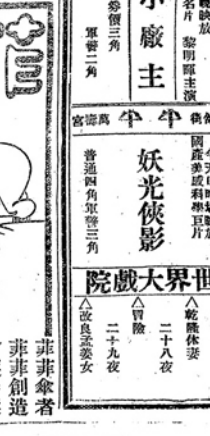 映放
名片　黎明暉主演
小廠主
券價三角
軍警二角
萬壽宮
國產美威科學巨片
妖光俠影
普通四角軍警三角
世界大戲院
△乾隆休妻
二十八夜
△冒險
二十九夜
△改良孟姜女
菲菲傘者
菲菲創造